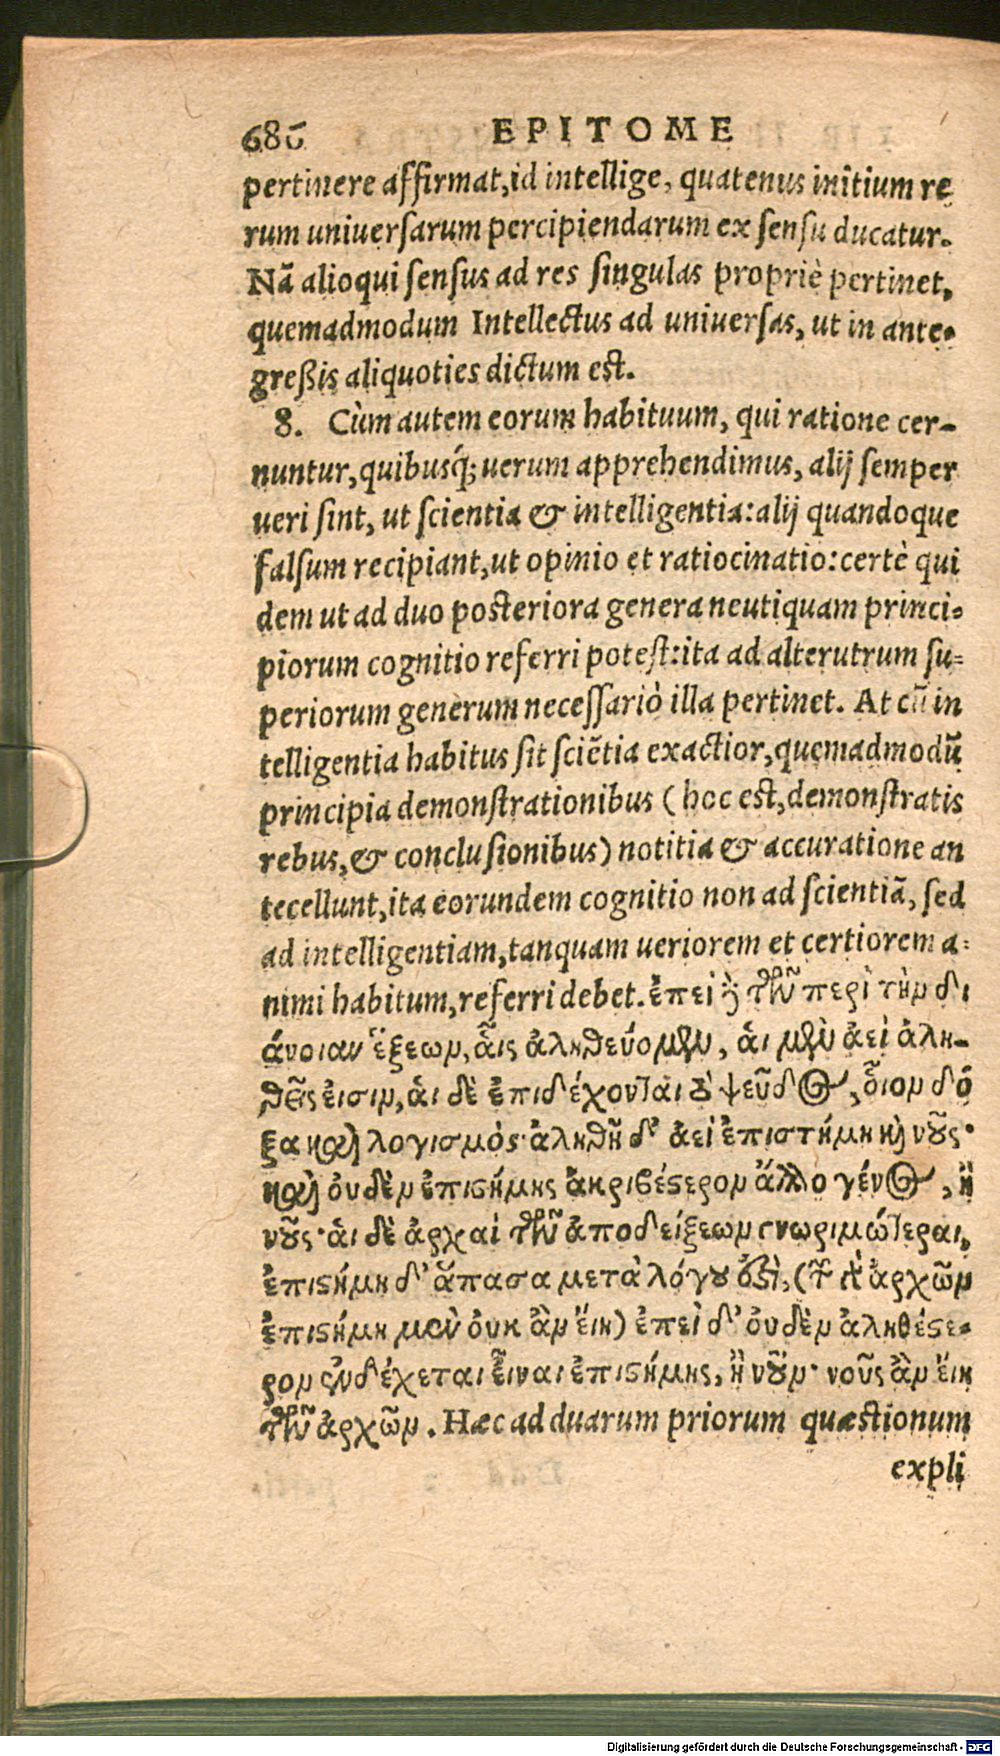 686 EPITOME
pertinere affirmat, id intellige, quatenus initium re
rum uniuersarum percipiendarum ex sensu ducatur.
Nã alioqui sensus ad res singulas propriè pertinet,
quemadmodum Intellectus ad uniuersas, ut in ante-
greßis aliquoties dictum est.
8. Cùm autem eorum habituum, qui ratione cer-
nuntur, quibusq́; uerum apprehendimus, alij semper
ueri sint, ut scientia & intelligentia: alij quandoque
falsum recipiant, ut opinio et ratiocinatio: certè qui
dem ut ad duo posteriora genera neutiquam princi-
piorum cognitio referri potest: ita ad alterutrum su-
periorum generum necessariò illa pertinet. At cũ in
telligentia habitus sit sciẽtia exactior, quemadmodũ
principia demonstrationibus (hoc est, demonstratis
rebus, & conclusionibus) notitia & accuratione an
tecellunt, ita eorundem cognitio non ad scientiã, sed
ad intelligentiam, tanquam ueriorem et certiorem a-
nimi habitum, referri debet. ἐπεὶ ϳ τῶν περὶ τὴν δι
άνοιαν ἕξεων, αἷς ἀληθεύομεν, ἁι μὲν ἀεὶ ἀλη-
θεῖς ἐισιν, ἁι δὲ ἐπιδέχονται τὸ ψεῦδος, οἷον δό
ξα καὶ λογισμός· ἀληθῆ δ' ἀεὶ ἐπιστήμη καὶ νοῦς·
καὶ ὀυδὲν ἐπιστήμης ἀκριβέστερον ἄλλο γένος, ἢ
νοῦς· ἁι δὲ ἀρχαὶ τῶν ἀποδείξεων γνωριμώτεραι,
ἐπιστήμη δ' ἅπασα μετὰ λόγου ὅξι, (τῶν δὲ ἀρχῶν
ἐπιστήμη μὲν ὀυκ ἂν ἔιη) ἐπεὶ δ' ὀυδὲν ἀληθέστε-
ρον ἐνδέχεται εἶναι ἐπιστήμης, ἢ νοῦν· νοῦς ἂν ἔιη
τῶν ἀρχῶν. Hæc ad duarum priorum quæstionum
expli
Digitalisierung gefördert durch die Deutsche Forschungsgemeinschaft - DFG